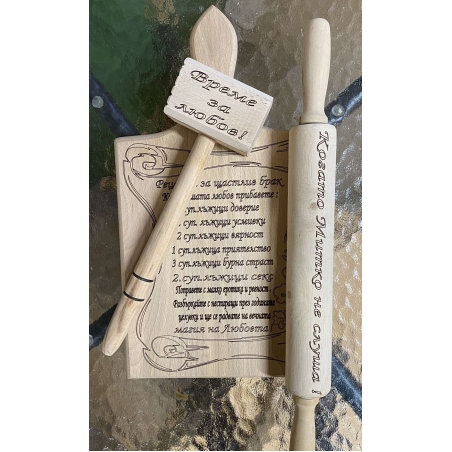 Време
за
любов!
за щастлив брак
любов прибавете :
суп.лъжици доверие
суп. лъжици усмивки
2 суп.лъжици вярност
1 суп.лъжица приятелство
3 суп.лъжици бурна страст
2.суп.лъжици секс
Поправете с малко еротика и ревност.
Разбъркайте с нестихващи през годините
целувки и ще се радвате на вечната
магия на Любовта!
Когато Митко не слуша !